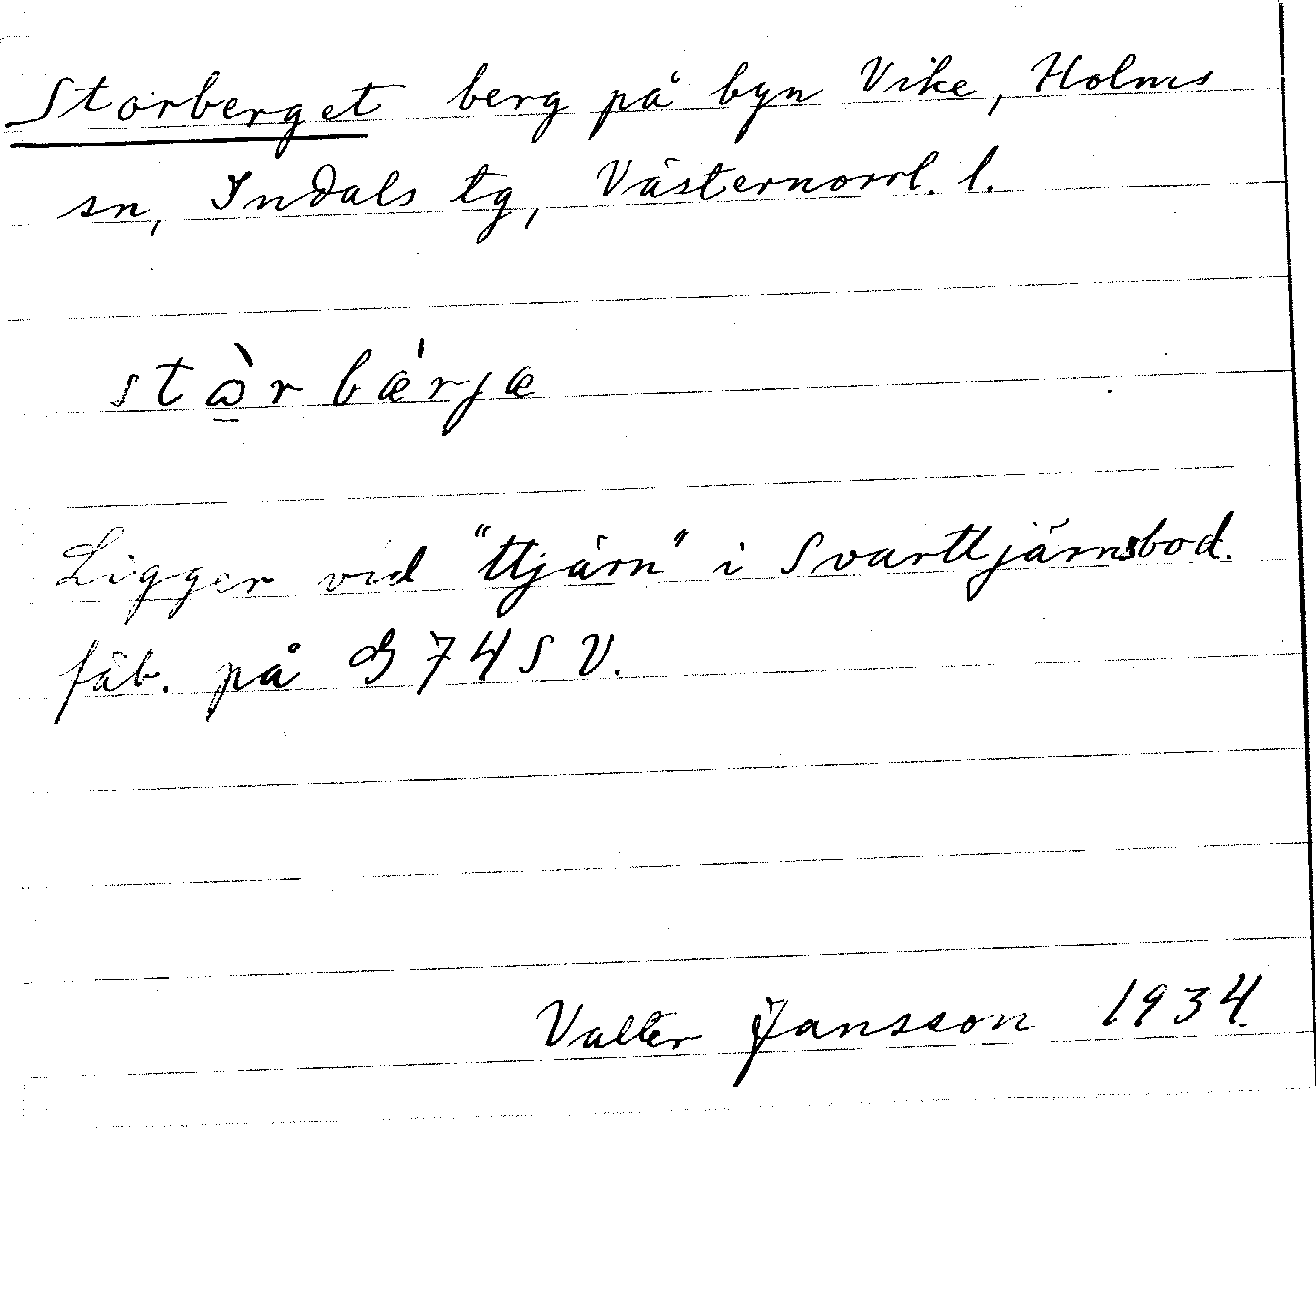 Storberget berg på byn Vike, Holms
sn, Indals tg, Västernorrl. l.
stò̠rbæ̍rjæ
Ligger vid "ttjärn" i Svarttjärnsbod.
fäb. på G 74 S V.
Valter Jansson 1934.